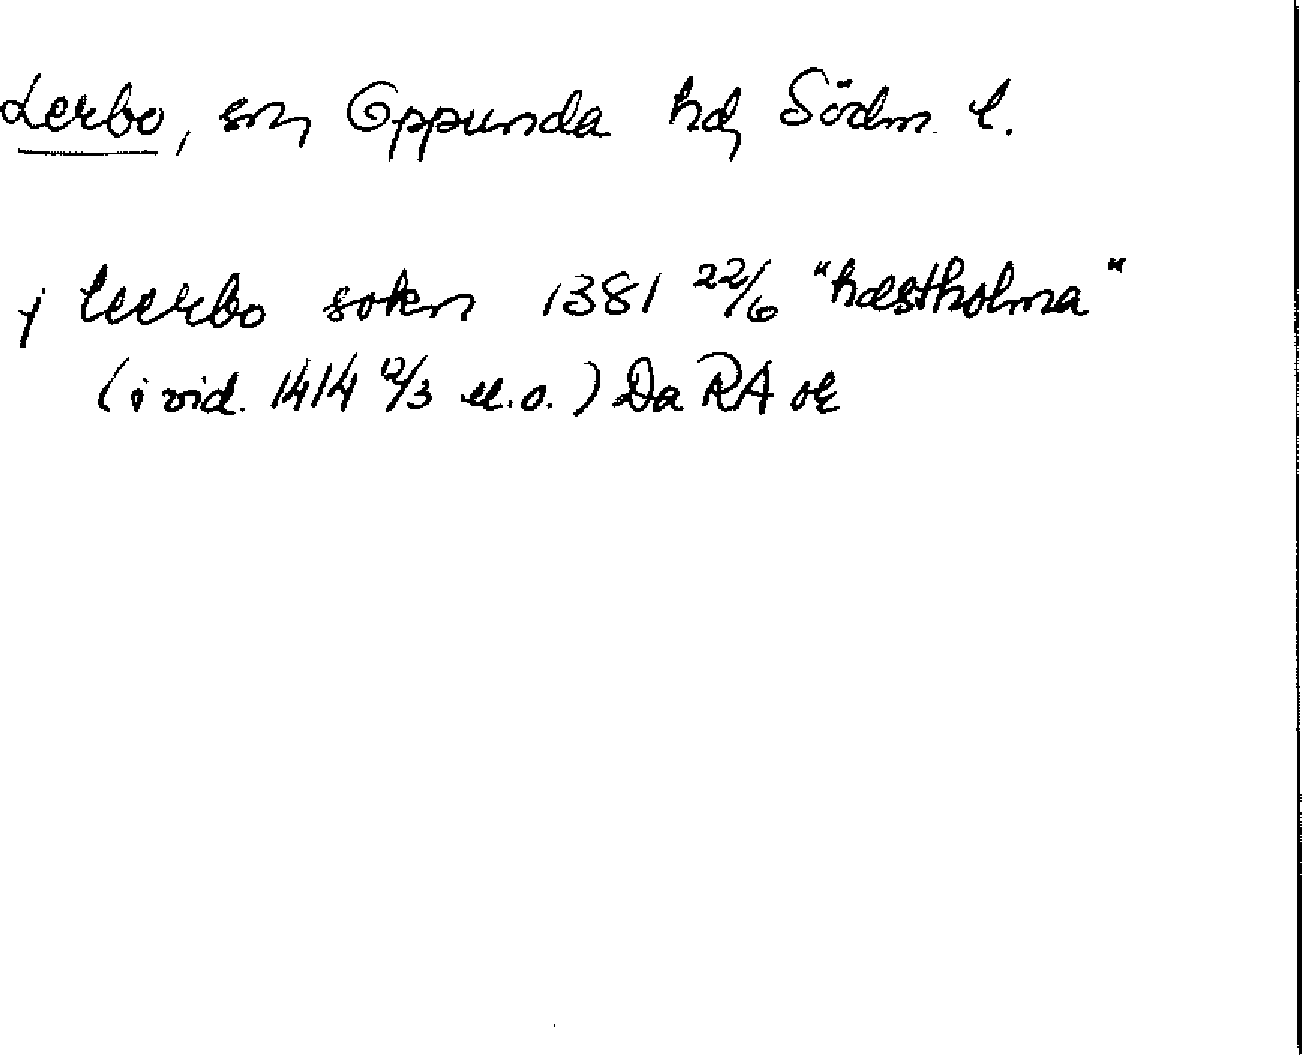 Lerbo, sn, Oppunda hd, Södm. l.
j leerbo sokn 1381 22/6 "hæstholma"
(i vid. 1414 12/3 u.o.) Da RA or